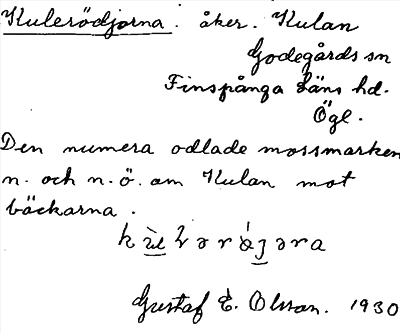 Kulerödjorna. åker. Kulan
Godegårds sn
Finspånga läns hd.
Ögl.
Den numera odlade mossmarken
n. och n.ö. om Kulan mot
bäckarna.
Gustaf E. Olsson. 1930